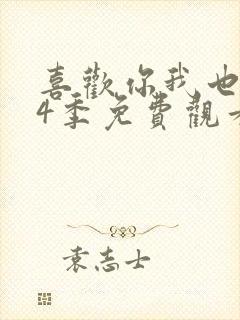 喜歡你我也
4季免費觀看
袁志士